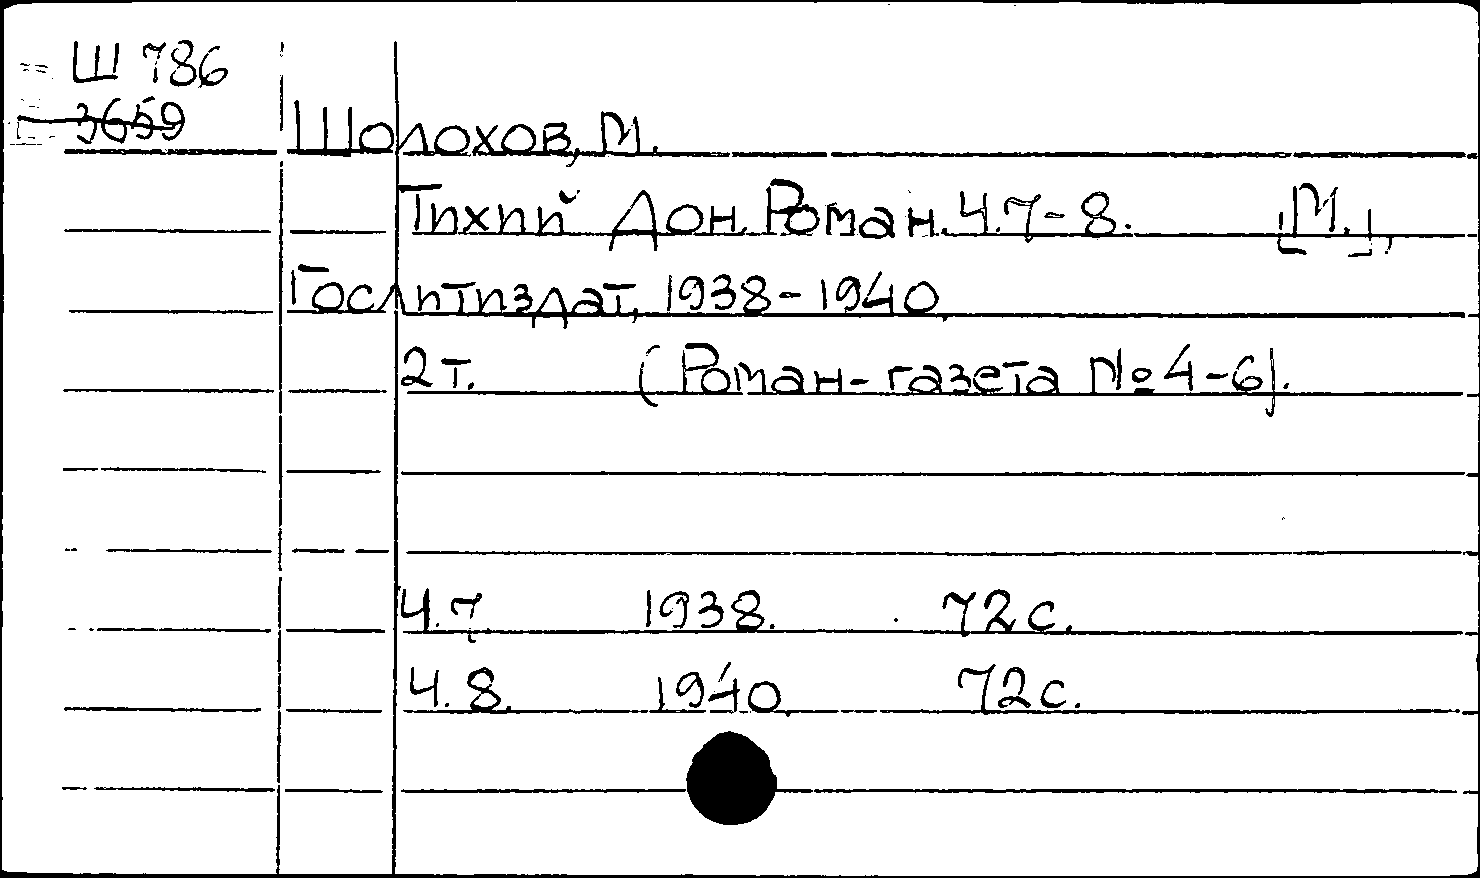 Ш 786
3659
Шолохов, М.
Тихий Дон. Роман. Ч.7-8. [М.],
Гослитиздат, 1938-1940.
2 т. (Роман-газета № 4-6).
Ч.7. 1938. 72 с.
Ч.8. 1940. 72 с.